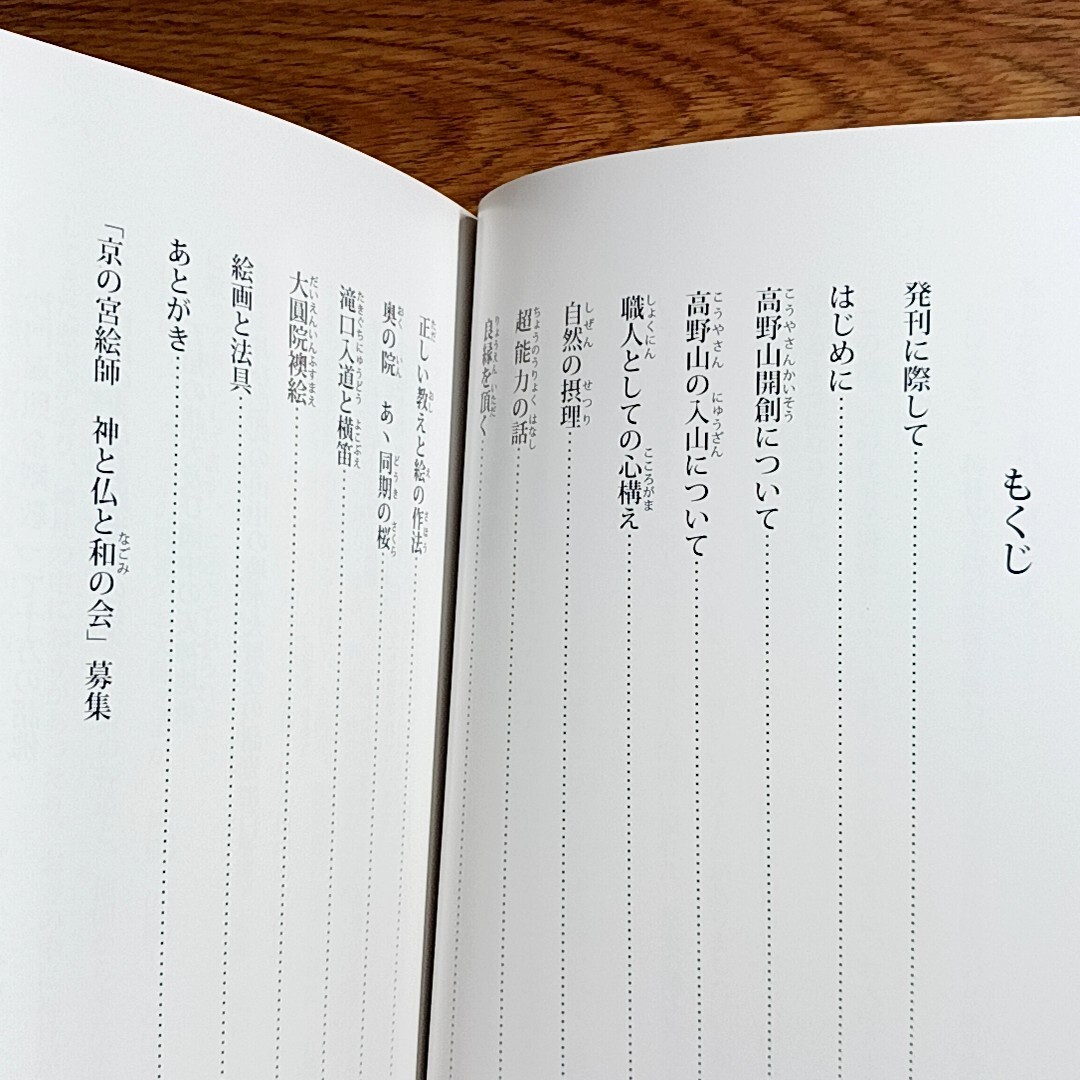 もくじ
発刊に際して
はじめに
高野山開創について
高野山の入山について
職人としての心構え
自然の摂理
超能力の話
良縁を頂く
正しい教えと絵の作法
奥の院　あゝ同期の桜
滝口入道と横笛
大圓院襖絵
絵画と法具
あとがき
「京の宮絵師　神と仏と和の会」募集